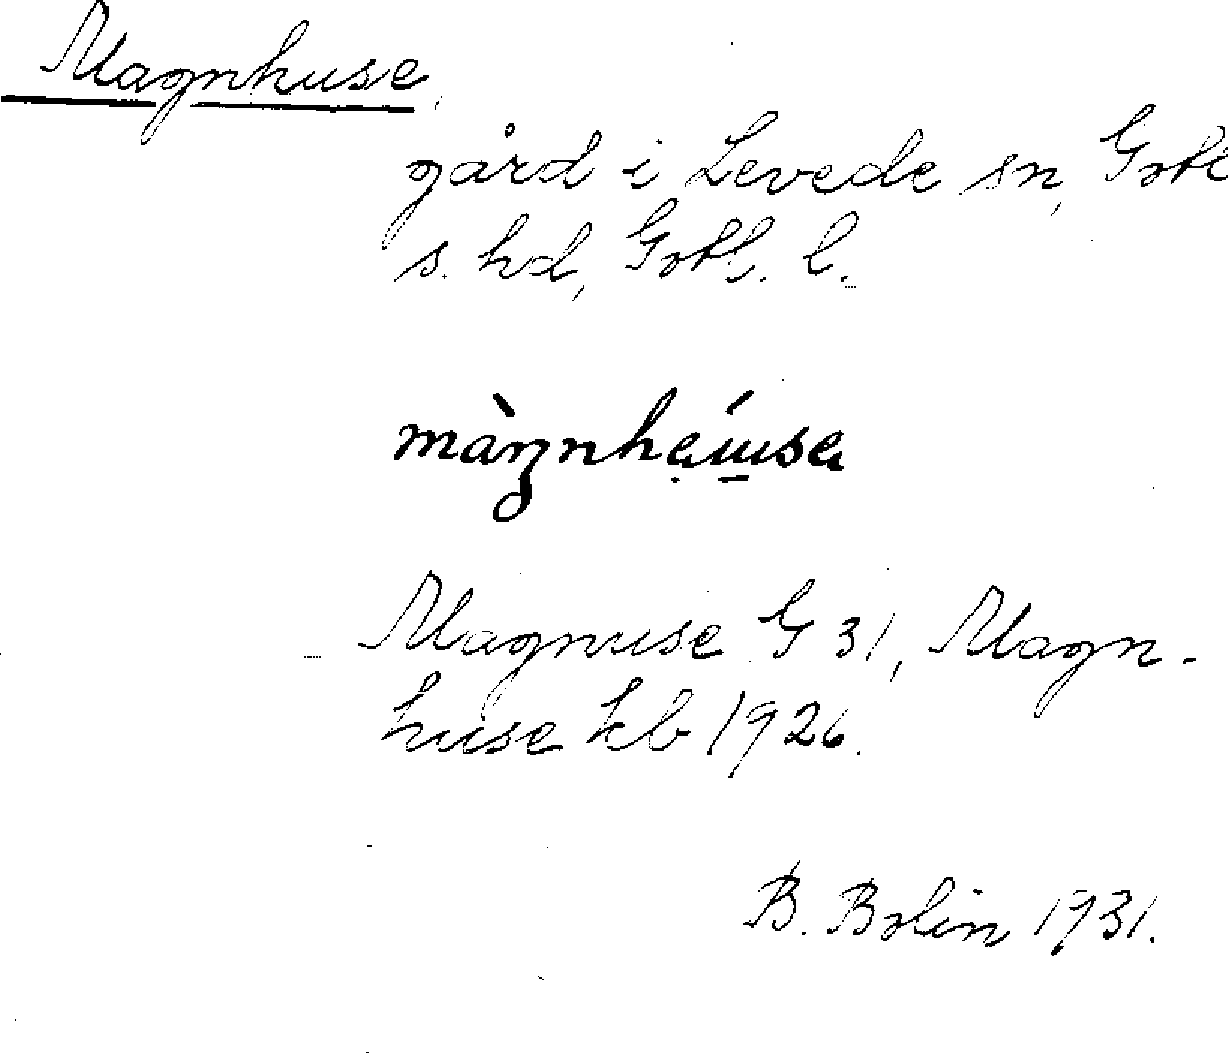 Magnhuse
gård i Levede sn, Gotl
s. hd, Gotl. l.
Magnuse G 31, Magn-
huse kb 1926.
B. Bolin 1931.